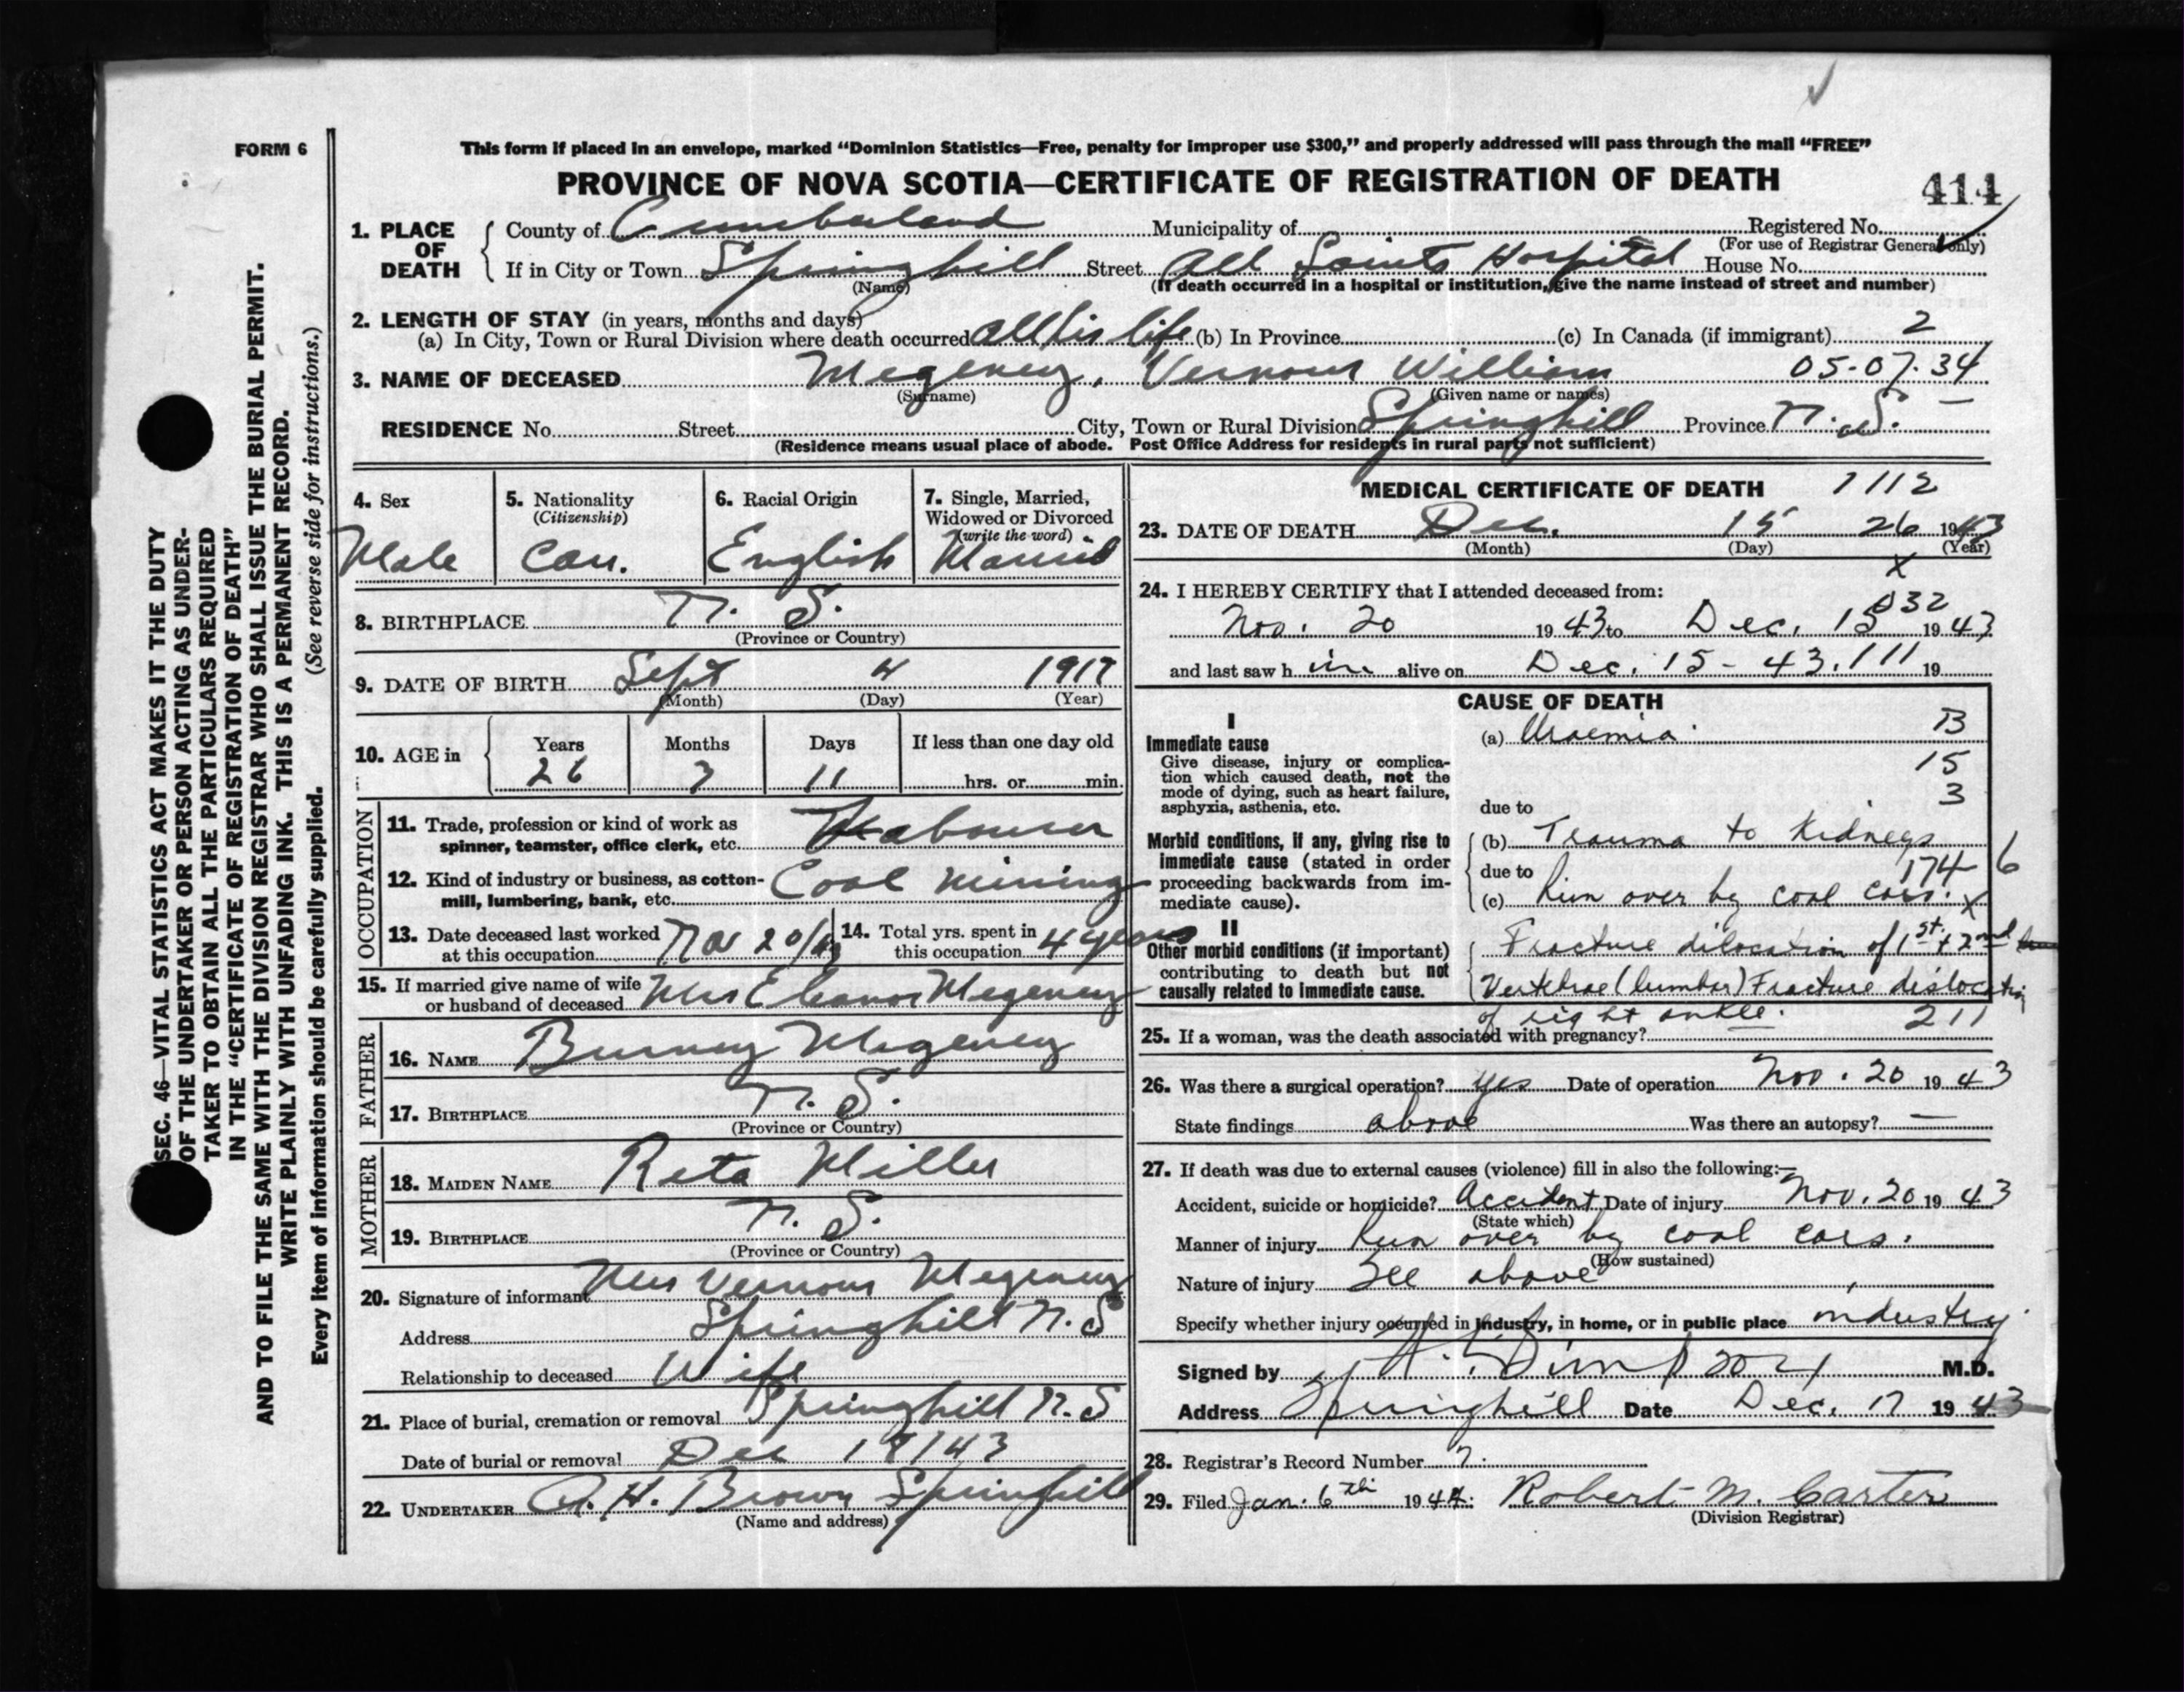 FORM 6
This form if placed in an envelope, marked “Dominion Statistics—Free, penalty for improper use $300,” and properly addressed will pass through the mail “FREE”
PROVINCE OF NOVA SCOTIA—CERTIFICATE OF REGISTRATION OF DEATH
414
1. PLACE OF DEATH
County of Cumberland Municipality of Registered No.
(For use of Registrar General only)
If in City or Town Springhill Street All Saints Hospital House No.
(Name) (If death occurred in a hospital or institution, give the name instead of street and number)
2. LENGTH OF STAY (in years, months and days)
(a) In City, Town or Rural Division where death occurred all his life (b) In Province (c) In Canada (if immigrant) 2
3. NAME OF DECEASED Megeney, Vernon William 05-07-34
(Surname) (Given name or names)
RESIDENCE No. Street City, Town or Rural Division Springhill Province N.S. —
(Residence means usual place of abode. Post Office Address for residents in rural parts not sufficient)
4. Sex
Male
5. Nationality
(Citizenship)
Can.
6. Racial Origin
English
7. Single, Married,
Widowed or Divorced
(write the word)
Married
8. BIRTHPLACE N. S.
(Province or Country)
9. DATE OF BIRTH Sept 4 1917
(Month) (Day) (Year)
10. AGE in
Years Months Days If less than one day old
26 3 11 hrs. or min.
OCCUPATION
11. Trade, profession or kind of work as
spinner, teamster, office clerk, etc. Labourer
12. Kind of industry or business, as cotton-
mill, lumbering, bank, etc. Coal Mining
13. Date deceased last worked
at this occupation Nov 20/43
14. Total yrs. spent in
this occupation 4 years
15. If married give name of wife
or husband of deceased Mrs Eleanor Megeney
FATHER
16. NAME Burney Megeney
17. BIRTHPLACE N. S.
(Province or Country)
MOTHER
18. MAIDEN NAME Reta Miller
19. BIRTHPLACE N. S.
(Province or Country)
20. Signature of informant Mrs Vernon Megeney
Address Springhill N.S
Relationship to deceased Wife
21. Place of burial, cremation or removal Springhill N.S
Date of burial or removal Dec 17/43
22. UNDERTAKER A. H. Brown Springhill
(Name and address)
MEDICAL CERTIFICATE OF DEATH 1112
23. DATE OF DEATH Dec. 15 26 1943
(Month) (Day) (Year)
X
24. I HEREBY CERTIFY that I attended deceased from:
032
Nov. 20 1943 to Dec. 15 1943
and last saw him alive on Dec. 15 - 43. 111 19
CAUSE OF DEATH
I
Immediate cause
Give disease, injury or complica-
tion which caused death, not the
mode of dying, such as heart failure,
asphyxia, asthenia, etc.
(a) Uraemia B
15
3
due to
Morbid conditions, if any, giving rise to
immediate cause (stated in order
proceeding backwards from im-
mediate cause).
(b) Trauma to Kidneys
due to 174 6
(c) Run over by coal cars. X
II
Other morbid conditions (if important)
contributing to death but not
causally related to immediate cause.
Fracture dilocation of 1st + 2nd
Vertebrae (lumbar) Fracture dislocation
of right ankle. 211
25. If a woman, was the death associated with pregnancy?
26. Was there a surgical operation? yes Date of operation Nov. 20 1943
State findings above Was there an autopsy? —
27. If death was due to external causes (violence) fill in also the following:—
Accident, suicide or homicide? Accident Date of injury Nov. 20 1943
(State which)
Manner of injury Run over by coal cars.
(How sustained)
Nature of injury See above
Specify whether injury occurred in industry, in home, or in public place industry
Signed by M.D.
Address Springhill Date Dec. 17 1943
28. Registrar's Record Number 7.
29. Filed Jan. 6th 1944. Robert M. Carter
(Division Registrar)
SEC. 46—VITAL STATISTICS ACT MAKES IT THE DUTY
OF THE UNDERTAKER OR PERSON ACTING AS UNDER-
TAKER TO OBTAIN ALL THE PARTICULARS REQUIRED
IN THE “CERTIFICATE OF REGISTRATION OF DEATH”
AND TO FILE THE SAME WITH THE DIVISION REGISTRAR WHO SHALL ISSUE THE BURIAL PERMIT.
WRITE PLAINLY WITH UNFADING INK. THIS IS A PERMANENT RECORD.
Every item of information should be carefully supplied. (See reverse side for instructions.)